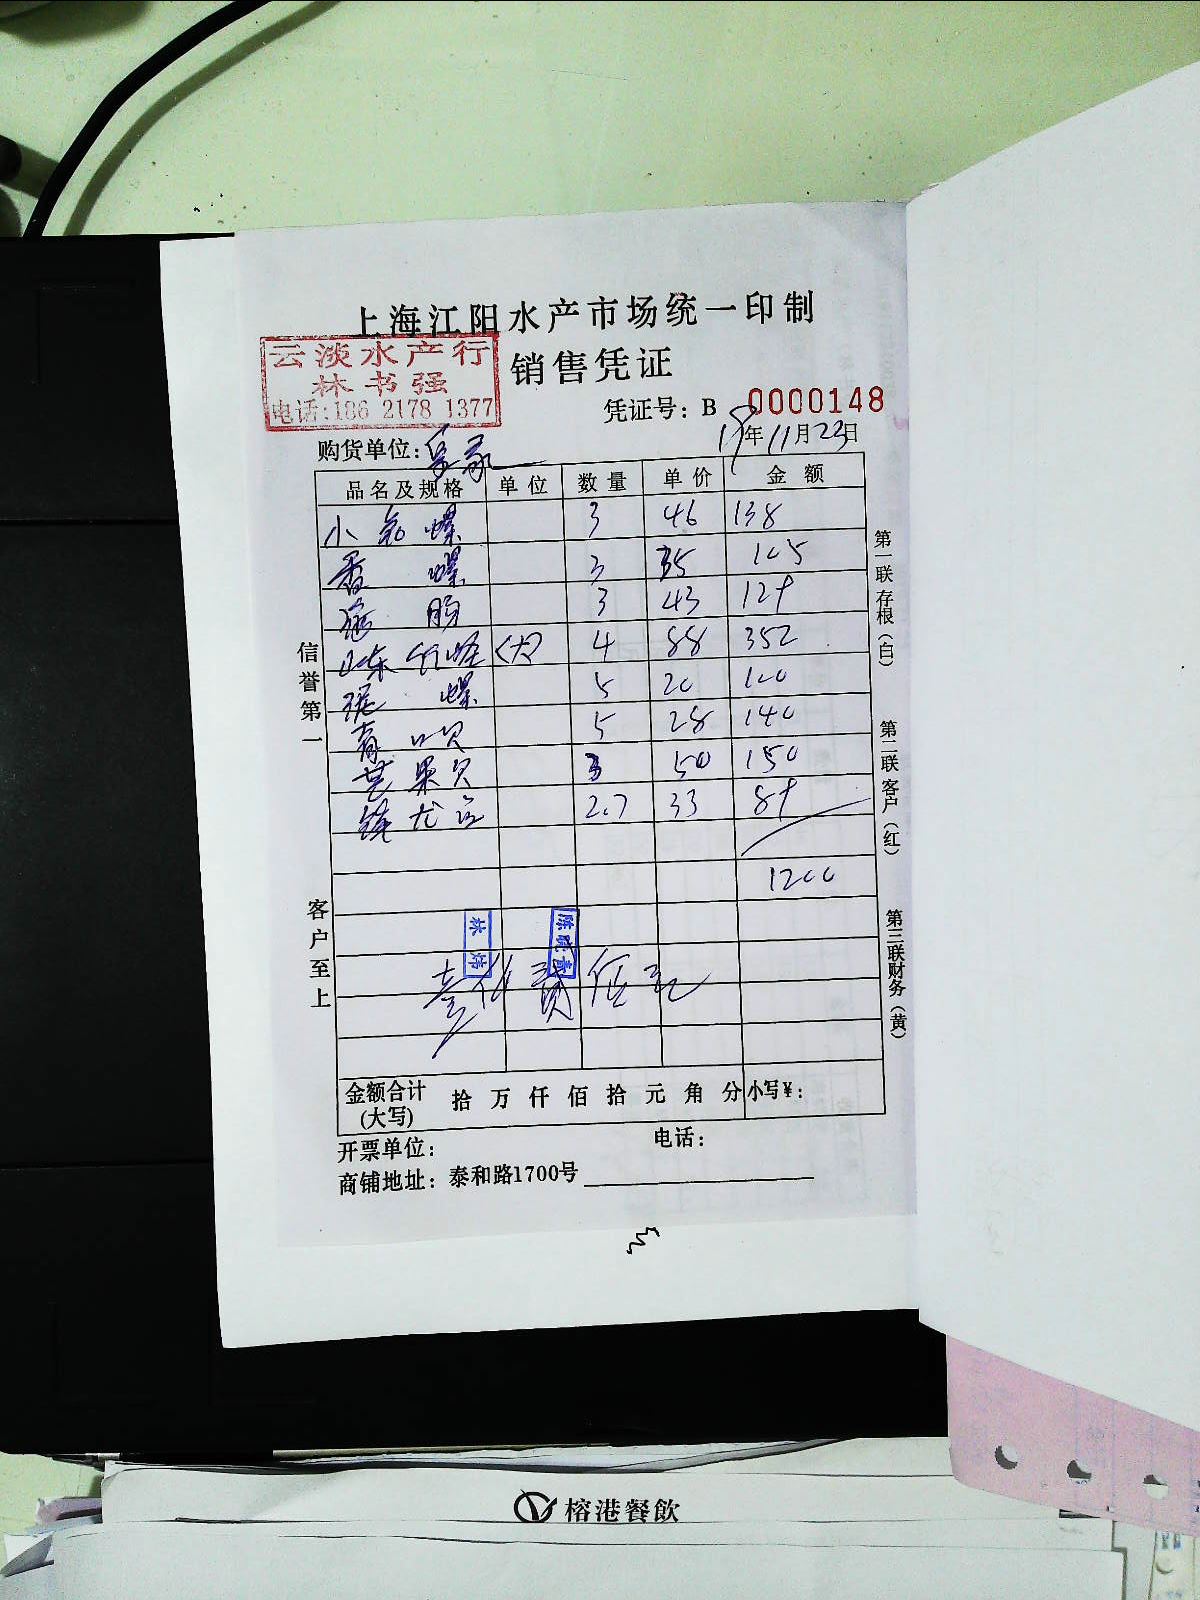 上海江阳水产市场统一印制
云淡水产行
林书强
电话:186 2178 1377
销售凭证
凭证号: B 0000148
19年11月23日
购货单位:
品名及规格 单位 数量 单价 金额
小 螺 3 46 138
香 螺 3 35 105
3 43 129
山东 (大) 4 88 352
螺 5 20 100
青口贝 5 28 140
芒果贝 3 50 150
龙 2.7 33 89
1200
信誉第一
客户至上
第一联存根(白)
第二联客户(红)
第三联财务(黄)
林
陈
金额合计(大写) 拾 万 仟 佰 拾 元 角 分 小写¥:
开票单位: 电话:
商铺地址: 泰和路1700号
榕港餐飲